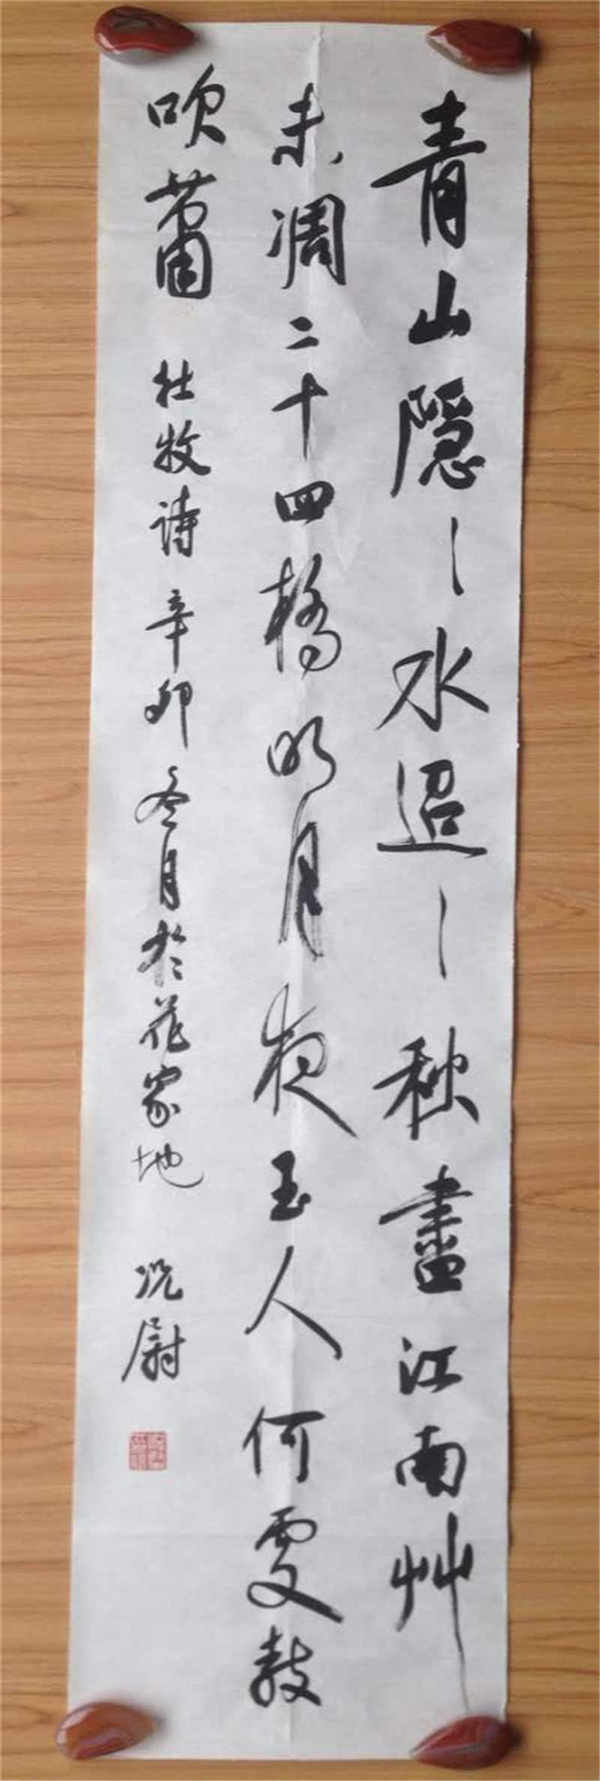 青山隐〻水迢〻秋盡江南艸
未凋二十四橋明月夜玉人何處教
吹簫 杜牧诗 辛卯冬月於花家地 况尉